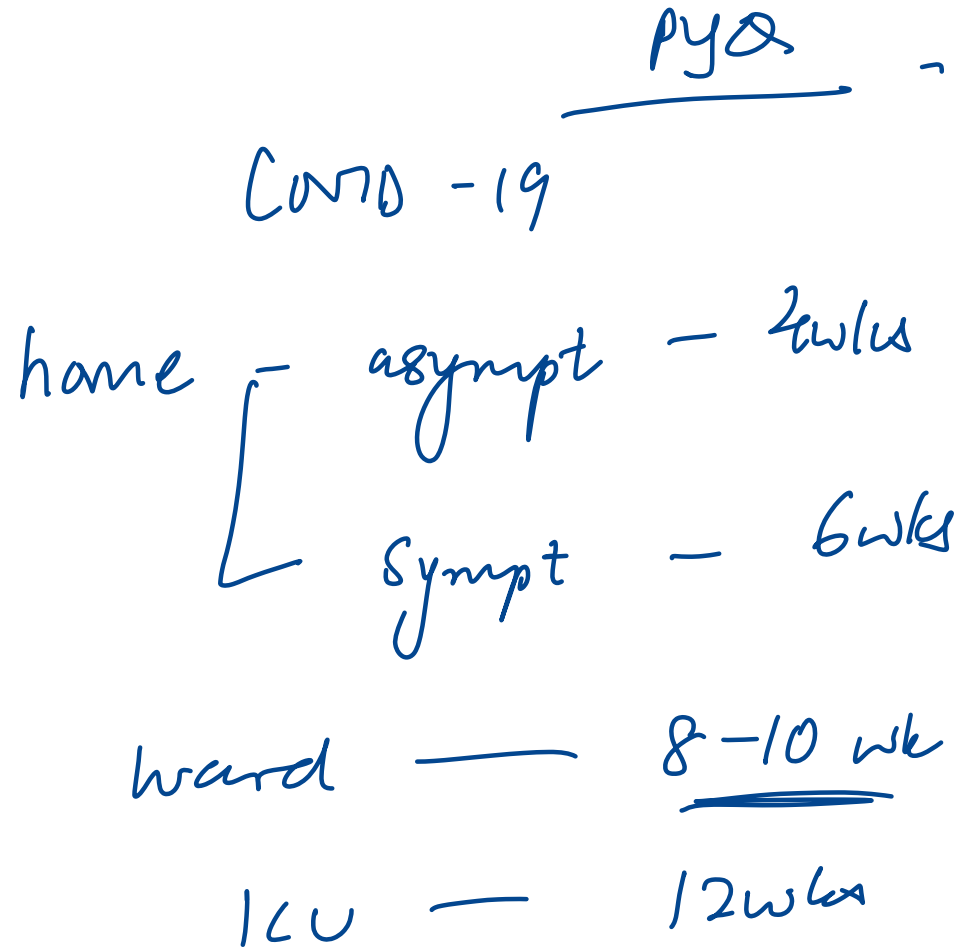 PYQ
COVID - 19
home - asympt - 4wks
sympt - 6wks
ward - 8-10 wk
ICU - 12wks